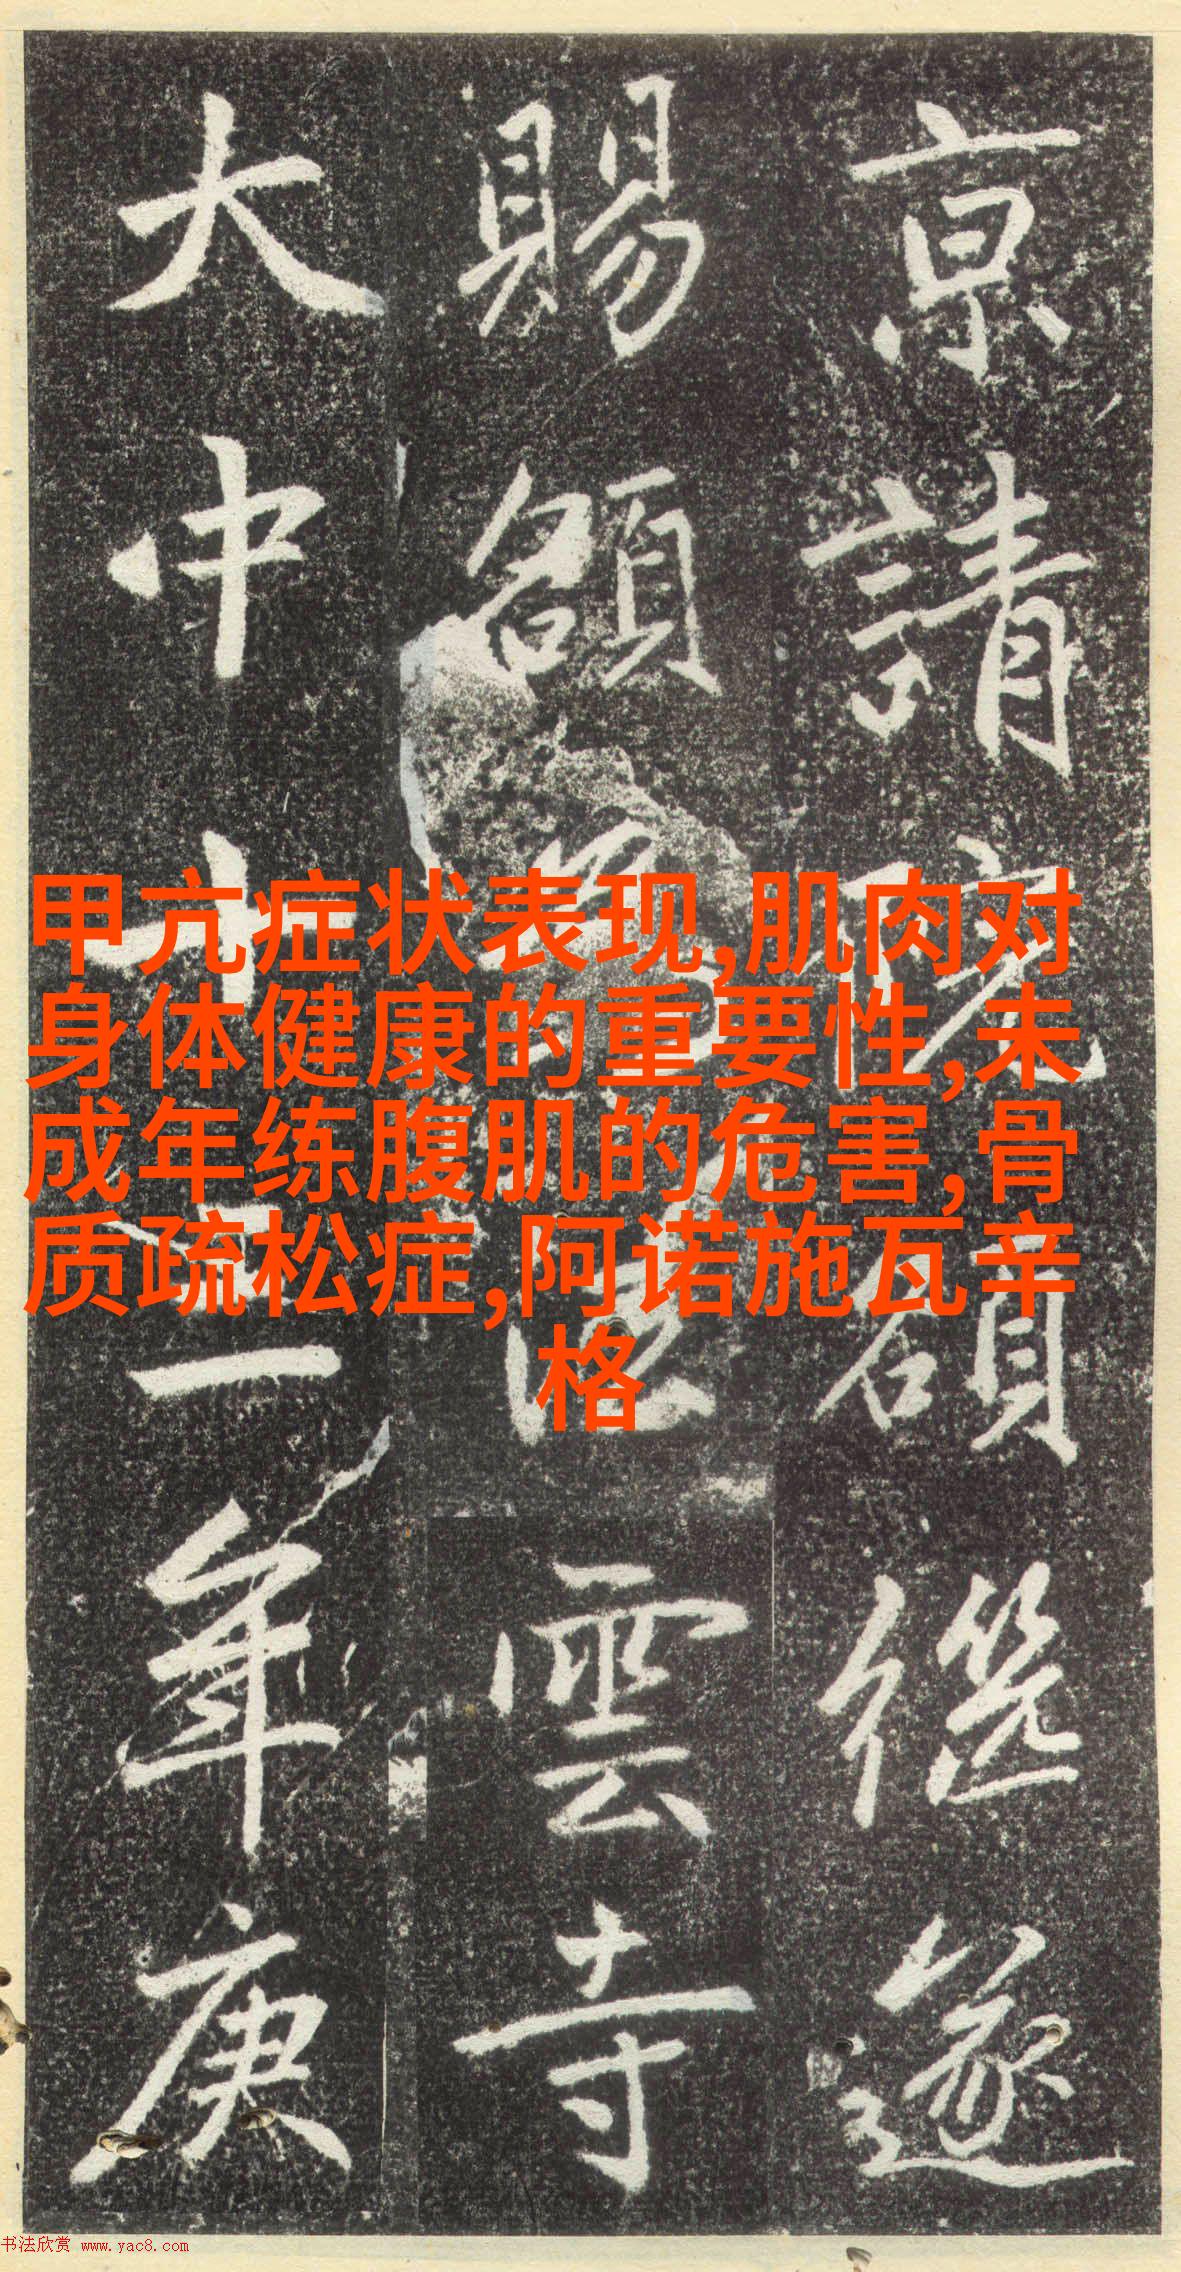 京請院額遂
賜額雲寺
大中十二年庚
甲亢症状表现,肌肉对
身体健康的重要性,未
成年练腹肌的危害,骨
质疏松症,阿诺施瓦辛
格
书法欣赏 www.yac8.com